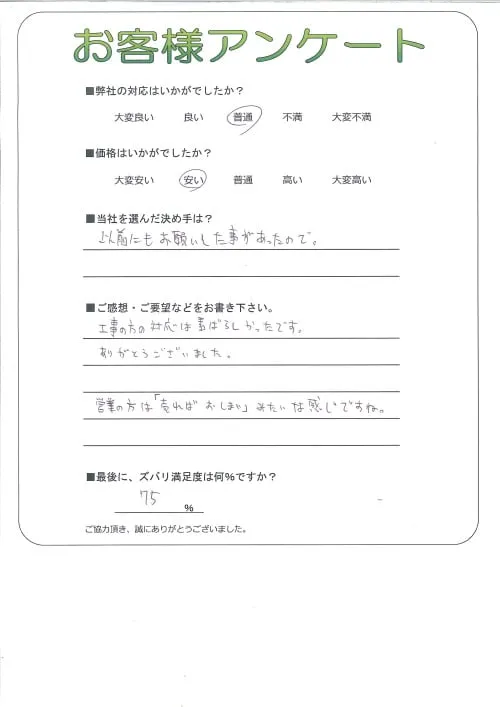 お客様アンケート
■弊社の対応はいかがでしたか？
大変良い 良い 普通 不満 大変不満
■価格はいかがでしたか？
大変安い 安い 普通 高い 大変高い
■当社を選んだ決め手は？
以前にもお願いした事があったので。
■ご感想・ご要望などをお書き下さい。
工事の方の対応は素ばらしかったです。
ありがとうございました。
営業の方は「売れば おしまい」みたいな感じですね。
■最後に、ズバリ満足度は何％ですか？
75 %
ご協力頂き、誠にありがとうございました。